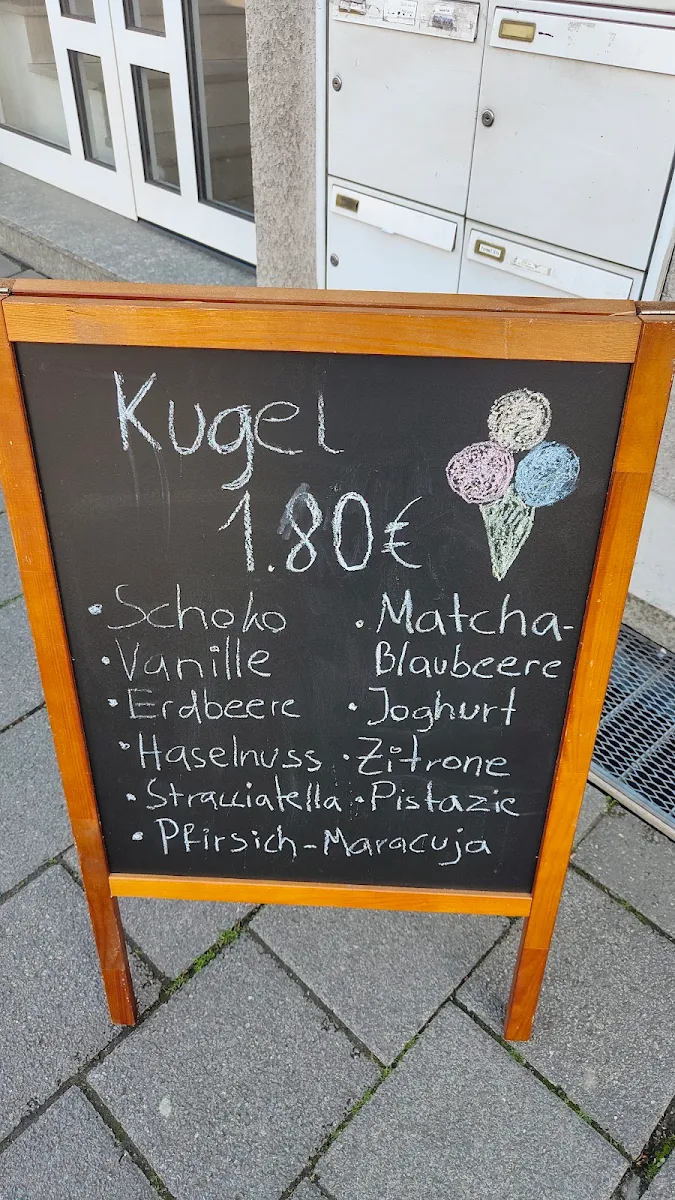 Kugel
1.80€
• Schoko
• Vanille
• Erdbeere
• Haselnuss
• Stracciatella
• Matcha-
Blaubeere
• Joghurt
• Zitrone
• Pistazie
• Pfirsich-Maracuja